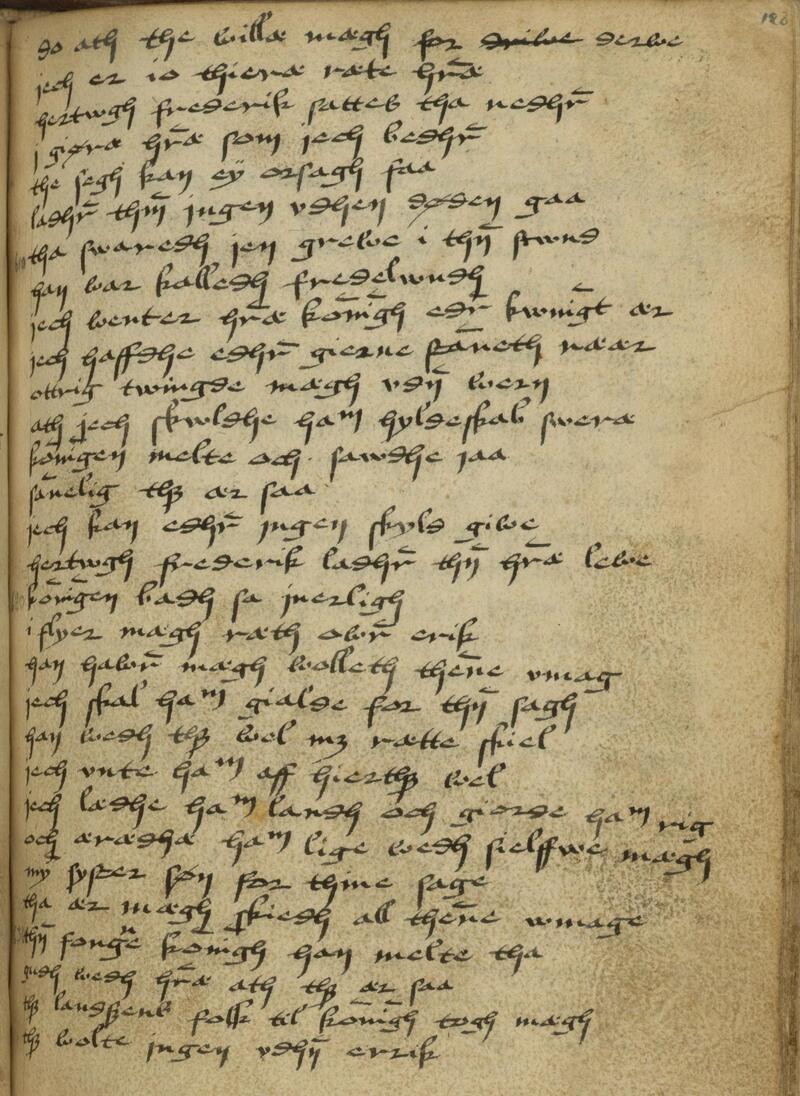 so ath the willæ mægh for driwe derwe
jech er io thieræ ræte hr̄æ
hertwgh frederik sattes tha nedhr̄
j giøræ hr̄æ som jech bedhr̄
the segh kan eÿ orsagh faa
ladhr̄ thn̄ ingen vdhen døden gaa
tha swaredh jen grewe i thn̄ stwnd
han war kalledh fredelwndh
jech wenter hr̄æ kon̄igh edr̄ kwnigt ær
jech haffdhe edhr̄ gierne stan̄eth næær
ottrig twingde mægh vdn̄ wern
ath jech skwldhe ham hyldeskab sweræ
kon̄igen melte och sawdhe jaa
san̄elig thꝫ ær saa
jech kan edhr̄ ingen skyld giwe
hertwgh frederik ladhr̄ thn̄ hr̄æ lewe
kon̄igen badh sa jnerligh
i flyer mægh ræth owr̄ erik
han hawr̄ mægh wolleth then̄e vmag
jech skal ham gialde for thn̄ sagh
han wedh thꝫ wel mꝫ rætte skiel
jech vnte ham aff hierthꝫ wel
jech lædhe ham landh och giorde ham rig
och ærædhæ ham lige wedh sielffwe mægh
my syster søn for thine sage
tha ær mægh skiedh all then̄e wmage
thn̄ fongn̄e kon̄igh han melte tha
gudh wedh hr̄æ ath thꝫ ær saa
thꝫ landꝫens folk til kon̄igh togh mægh
thꝫ wolte ingen vdhn̄ errik